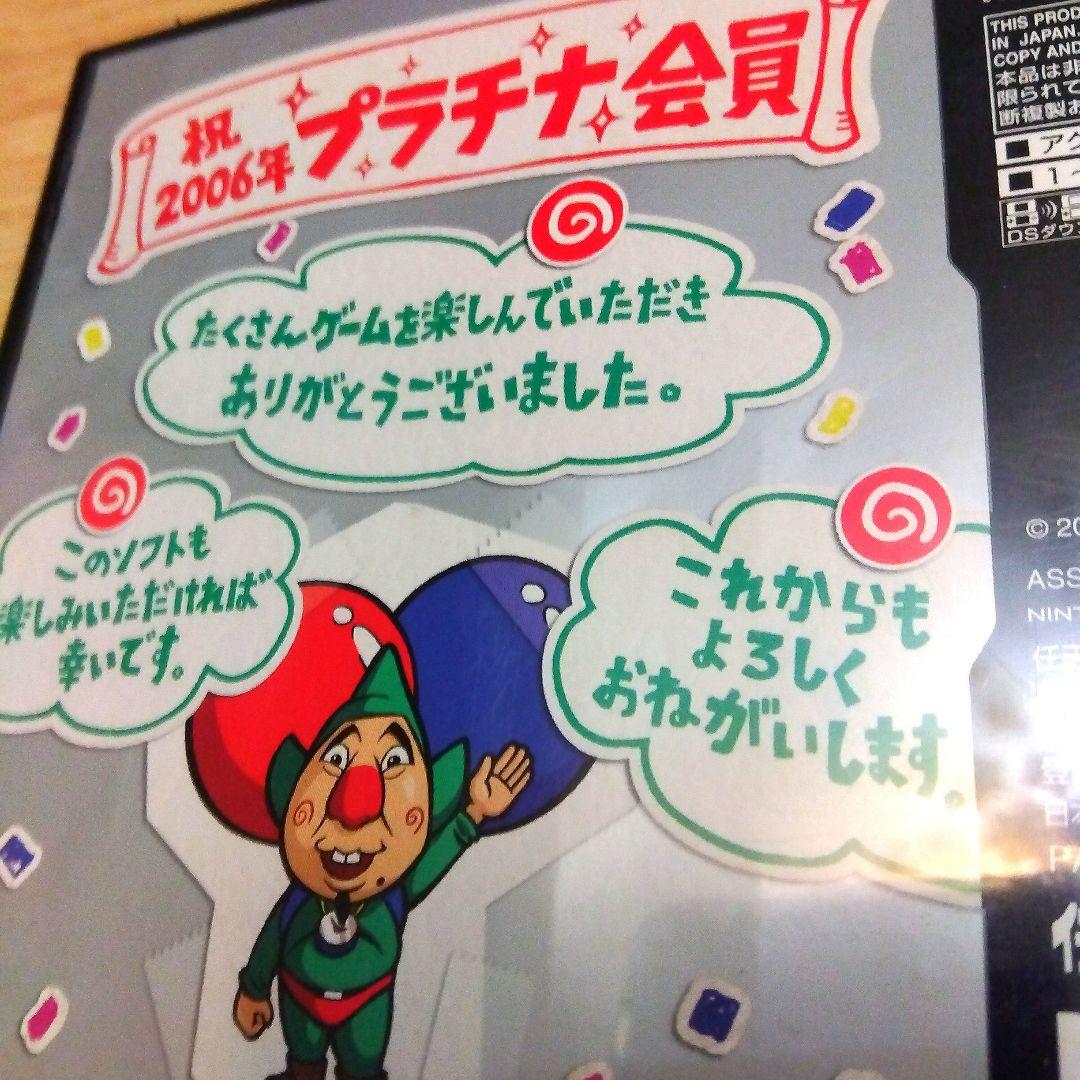 祝
2006年
プラチナ会員
たくさんゲームを楽しんでいただき
ありがとうございました。
このソフトも
楽しみいただければ
幸いです。
これからも
よろしく
おねがいします。
THIS PROD
IN JAPAN.
COPY AND
本品は非
限られて
断複製お
アク
1～
DSダウン
© 20
ASS
NINT
任天
P
任